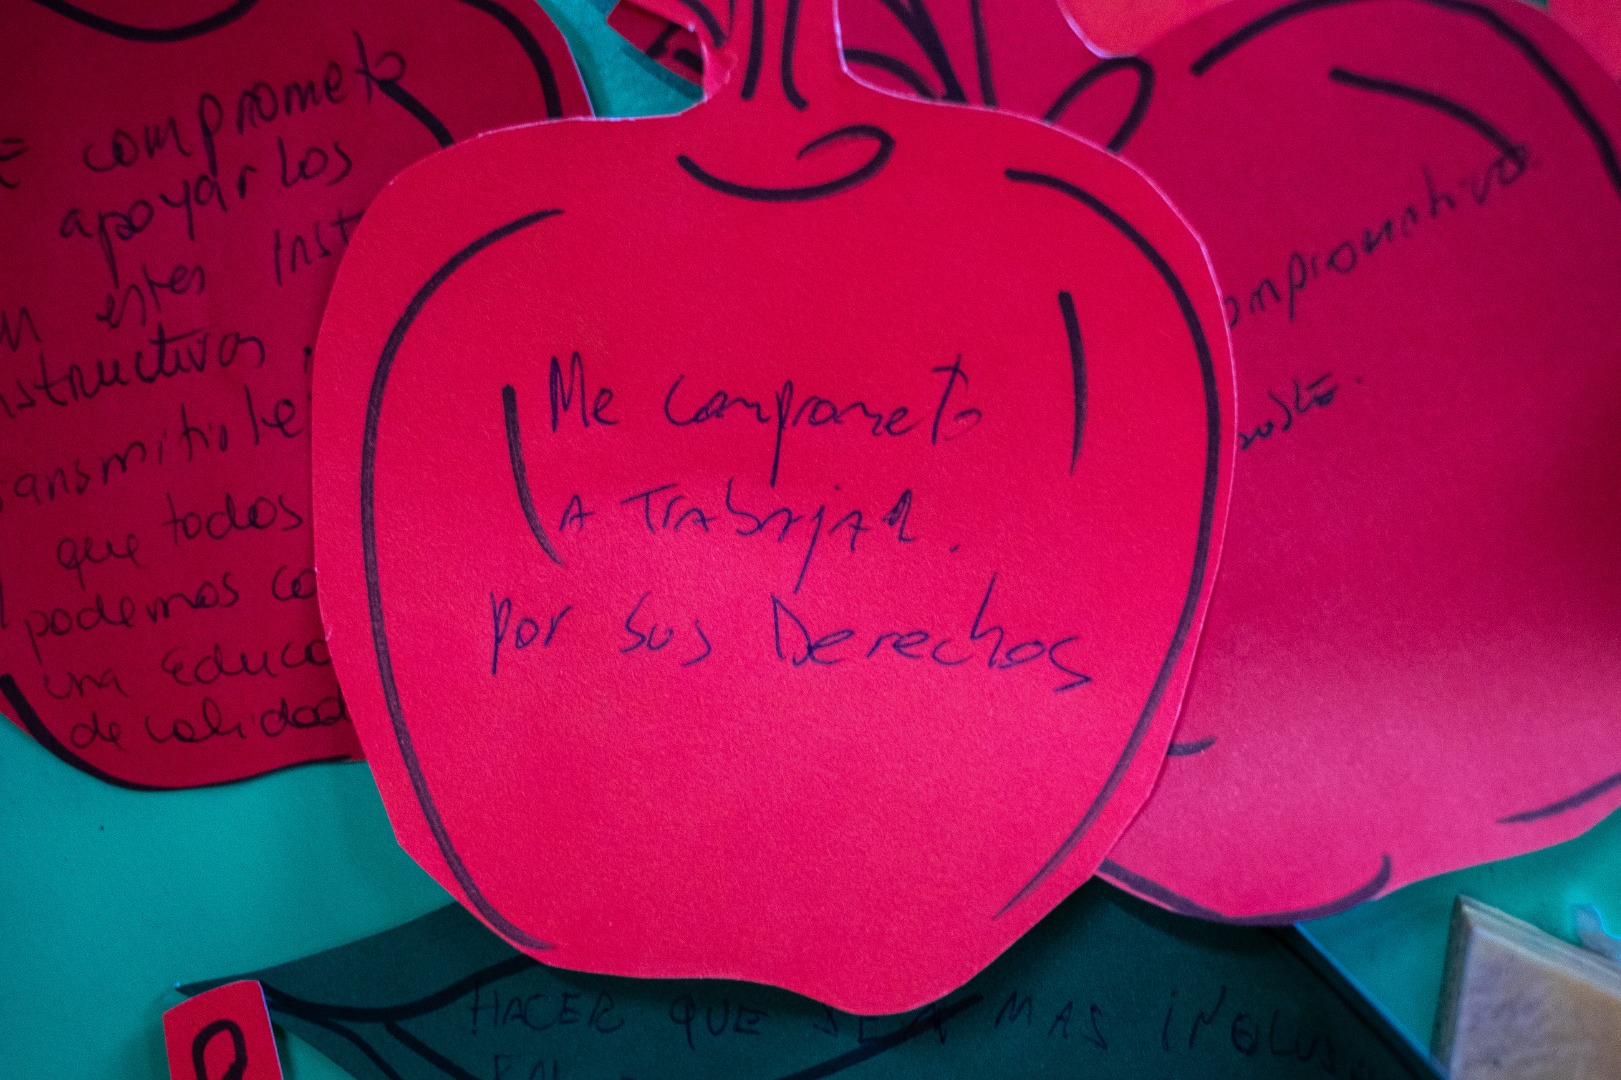 comprometo
apoyar los
en estes inst
nstructivos
ansmitirle
que todos
podemos co
una educa
de calidad
Me comprometo
A TrAbajar.
por sus Derechos
HACER QUE SEA MAS INCLUS